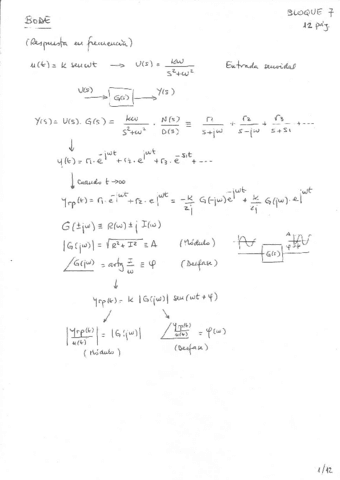 BLOQUE 7
BODE
12 pág.
(Respuesta en frecuencia)
u(t) = k sen wt → U(s) = kw / s²+w² Entrada senoidal
U(s) → G(s) → Y(s)
Y(s) = U(s) · G(s) = kw / s²+w² · N(s) / D(s) ≡ r1 / s+jw + r2 / s-jw + r3 / s+s1 + ---
y(t) = r1 · e^-jwt + r2 · e^jwt + r3 · e^-s1t + ---
Cuando t → ∞
yrp(t) = r1 · e^-jwt + r2 · e^jwt = -k/2j G(-jw) e^-jwt + k/2j G(jw) · e^jwt
G(±jw) ≡ R(w) ± j I(w)
|G(jw)| = √R²+I² ≡ A (Módulo)
G(s)
∠G(jw) = arctg I/w ≡ φ (Desfase)
yrp(t) = k |G(jw)| sen(wt + φ)
|yrp(t) / u(t)| = |G(jw)| ∠yrp(t) / u(t) = φ(w)
(Módulo) (Desfase)
1/12